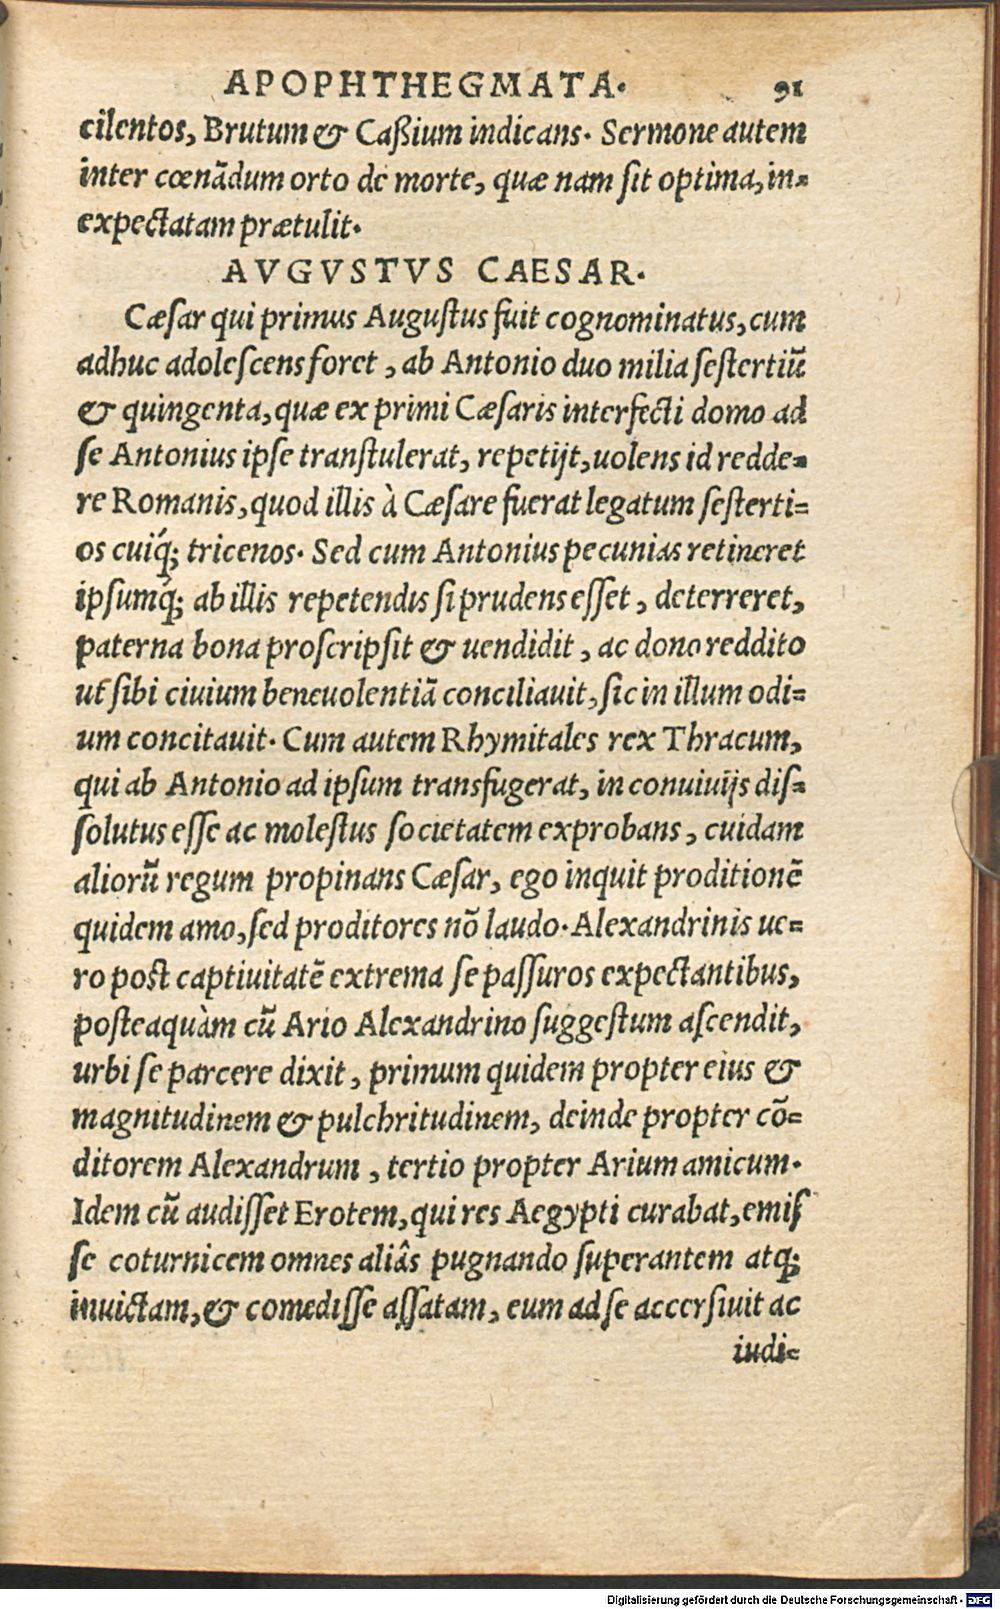 APOPHTHEGMATA. 91
cilentos, Brutum & Caßium indicans. Sermone autem
inter cœnãdum orto de morte, quæ nam ſit optima, in-
expectatam prætulit.
AVGVSTVS CAESAR.
Cæſar qui primus Auguſtus fuit cognominatus, cum
adhuc adoleſcens foret, ab Antonio duo milia ſeſtertiũ
& quingenta, quæ ex primi Cæſaris interfecti domo ad
ſe Antonius ipſe tranſtulerat, repetijt, uolens id redde-
re Romanis, quod illis à Cæſare fuerat legatum ſeſterti-
os cuiq́; tricenos. Sed cum Antonius pecunias retineret
ipſumq́; ab illis repetendis ſi prudens eſſet, deterreret,
paterna bona proſcripſit & uendidit, ac dono reddito
ut ſibi ciuium beneuolentiã conciliauit, ſic in illum odi-
um concitauit. Cum autem Rhymitales rex Thracum,
qui ab Antonio ad ipſum transfugerat, in conuiuijs diſ-
ſolutus eſſe ac moleſtus ſocietatem exprobans, cuidam
aliorũ regum propinans Cæſar, ego inquit proditionẽ
quidem amo, ſed proditores nõ laudo. Alexandrinis ue-
ro poſt captiuitatẽ extrema ſe paſſuros expectantibus,
poſteaquàm cũ Ario Alexandrino ſuggeſtum aſcendit,
urbi ſe parcere dixit, primum quidem propter eius &
magnitudinem & pulchritudinem, deinde propter cõ-
ditorem Alexandrum, tertio propter Arium amicum.
Idem cũ audiſſet Erotem, qui res Aegypti curabat, emiſ
ſe coturnicem omnes aliâs pugnando ſuperantem atq;
inuictam, & comediſſe aſſatam, eum ad ſe accerſiuit ac
iudi-
Digitalisierung gefördert durch die Deutsche Forschungsgemeinschaft - DFG